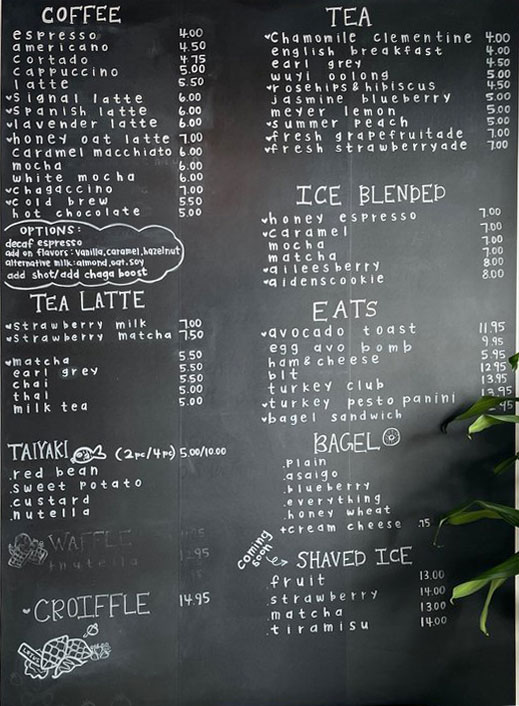 COFFEE
espresso 4.00
americano 4.50
cortado 4.75
cappuccino 5.00
latte 5.50
♥signal latte 6.00
♥spanish latte 6.00
♥lavender latte 6.00
♥honey oat latte 7.00
caramel macchiato 6.00
mocha 6.00
white mocha 6.00
♥chagaccino 7.00
♥cold brew 5.50
hot chocolate 5.00
OPTIONS:
decaf espresso
add on flavors: vanilla, caramel, hazelnut
alternative milk: almond, oat, soy
add shot/add chaga boost
TEA LATTE
♥strawberry milk 7.00
♥strawberry matcha 7.50
♥matcha 5.50
earl grey 5.50
chai 5.50
thai 5.00
milk tea 5.00
TAIYAKI (2pc/4pc) 5.00/10.00
.red bean
.sweet potato
.custard
.nutella
WAFFLE
nutella 12.95
♥CROIFFLE 14.95
TEA
♥Chamomile clementine 4.00
english breakfast 4.00
earl grey 4.50
wuyi oolong 5.00
♥rosehips & hibiscus 4.50
jasmine blueberry 5.00
meyer lemon 5.00
♥summer peach 5.00
♥fresh grapefruitade 7.00
♥fresh strawberryade 7.00
ICE BLENDED
♥honey espresso 7.00
♥caramel 7.00
mocha 7.00
matcha 7.00
♥aileesberry 8.00
♥aidenscookie 8.00
EATS
♥avocado toast 11.95
egg avo bomb 9.95
ham & cheese 5.95
blt 12.95
turkey club 13.95
♥turkey pesto panini 13.95
♥bagel sandwich
BAGEL
.plain
.asaigo
.blueberry
.everything
.honey wheat
+cream cheese .75
coming soon
SHAVED ICE
fruit 13.00
.strawberry 14.00
.matcha 13.00
.tiramisu 14.00